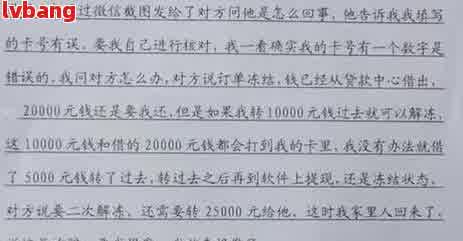 lvbang
过微信截图发给了对方问他是怎么回事，他告诉我我填写
的卡号有误，要我自己进行核对，我一看确实我的卡号有一个数字是
错误的，我问对方怎么办，对方说订单冻结，钱已经从贷款中心借出，
20000元钱还是要我还，但是如果我转10000元钱过去就可以解冻，
这10000元钱和借的20000元钱都会打到我的卡里，我没有办法就借
了5000元钱转了过去，转过去之后再到软件上提现，还是冻结状态，
对方说要二次解冻，还需要转25000元给他，这时我家里人回来了，